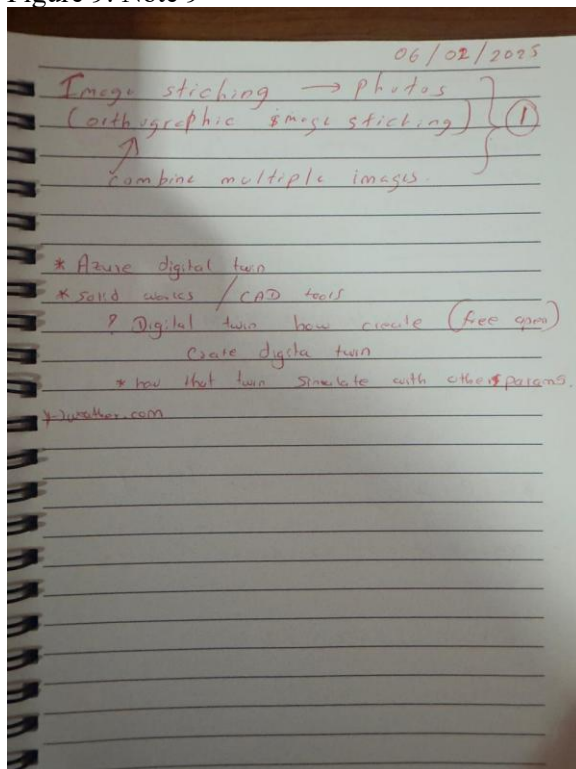 Figure 9: Note 9
06/02/2025
Image stiching → photos
(orthographic image stiching) } ①
combine multiple images.
* Azure digital twin
* Solid works / CAD tools
? Digital twin how create (free open)
Crate digita twin
* how that twin simulate with others params.
weather.com